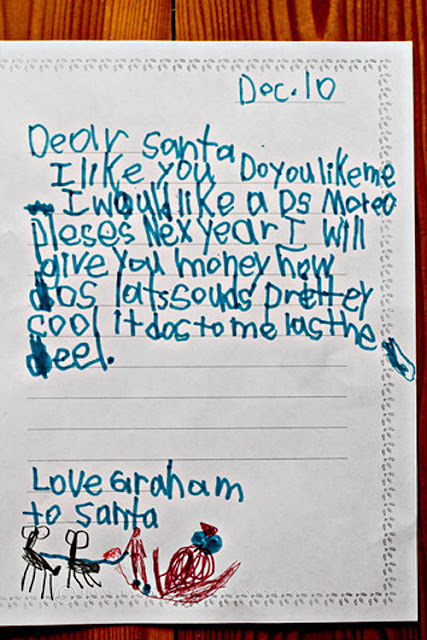 Dec. 10
Dear Santa
I like you Do you like me
I would like a Ds Moteo
pleses Nex year I will
give you money how
dos lats souds prettey
cool it dos to me lasthe
deel.
Love Graham
to Santa